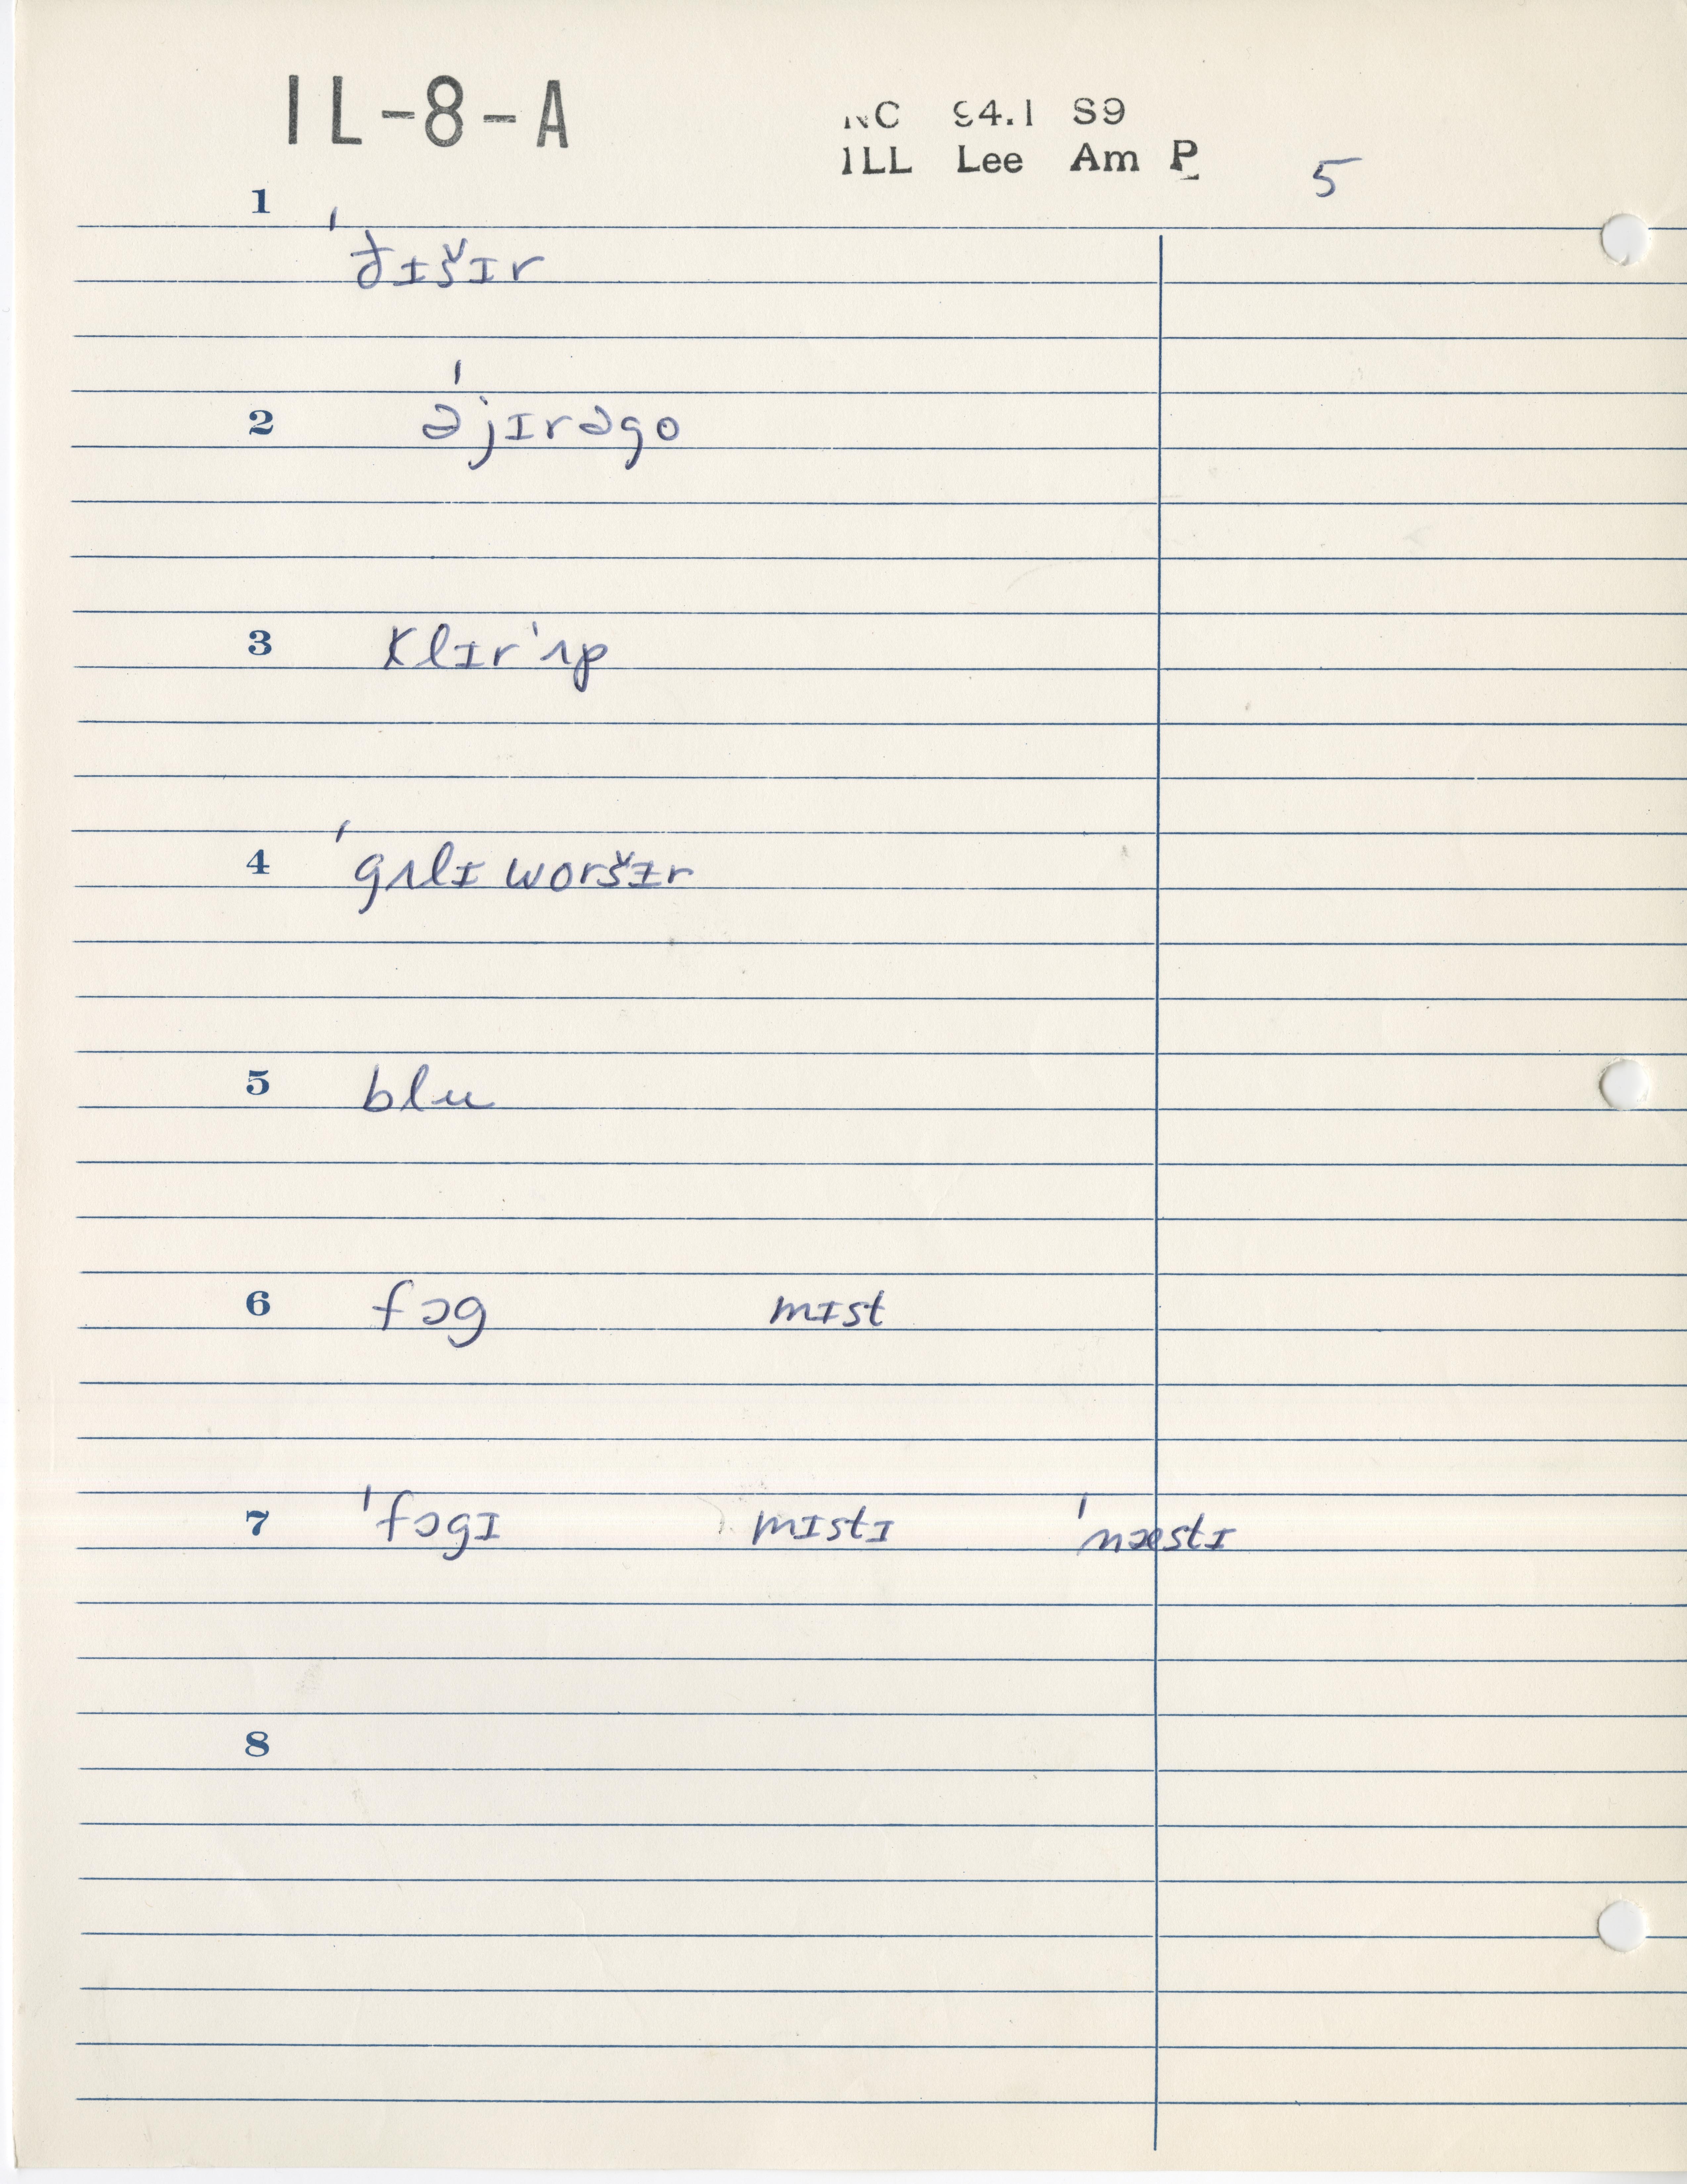 IL-8-A
NC 94.1 S9
ILL Lee Am P
5
1 ˈðɪšɪr
2 əˈjɪrəgo
3 klɪrˈʌp
4 ˈgʌlɪ woršɪr
5 blu
6 fɔg mɪst
7 ˈfɔgɪ mɪstɪ ˈnæstɪ
8